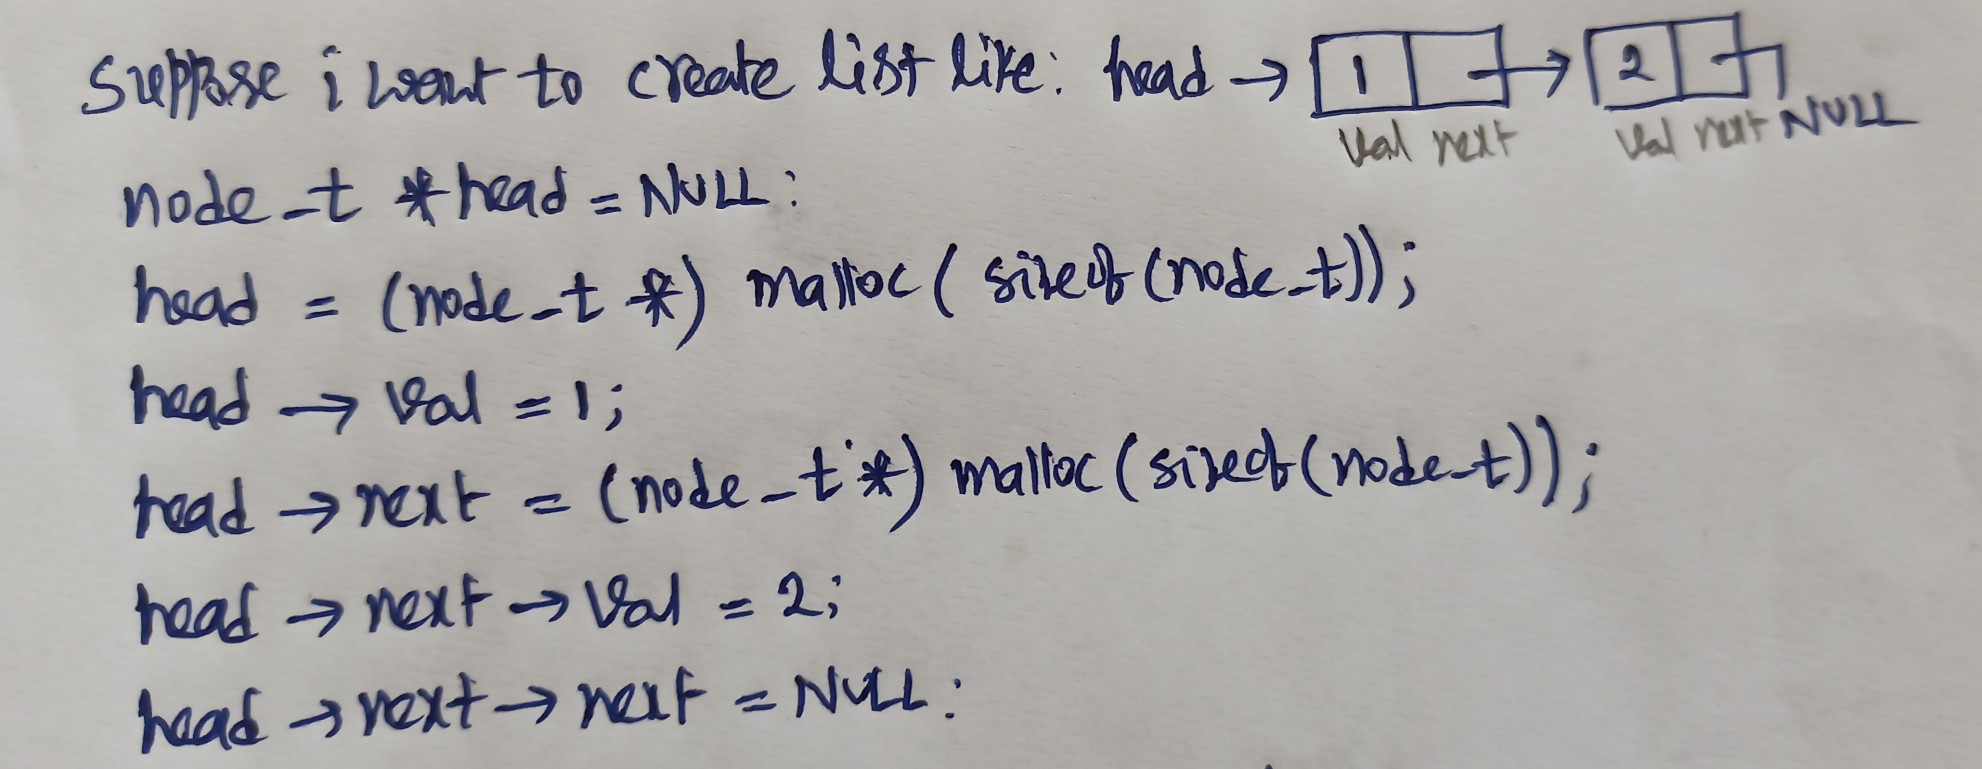 Suppose i want to create list like: head → 1 → 2
val next val next NULL
node_t *head = NULL:
head = (node_t *) malloc( sizeof (node_t));
head → val = 1;
head → next = (node_t *) malloc (sizeof (node_t));
head → next → val = 2;
head → next → next = NULL: